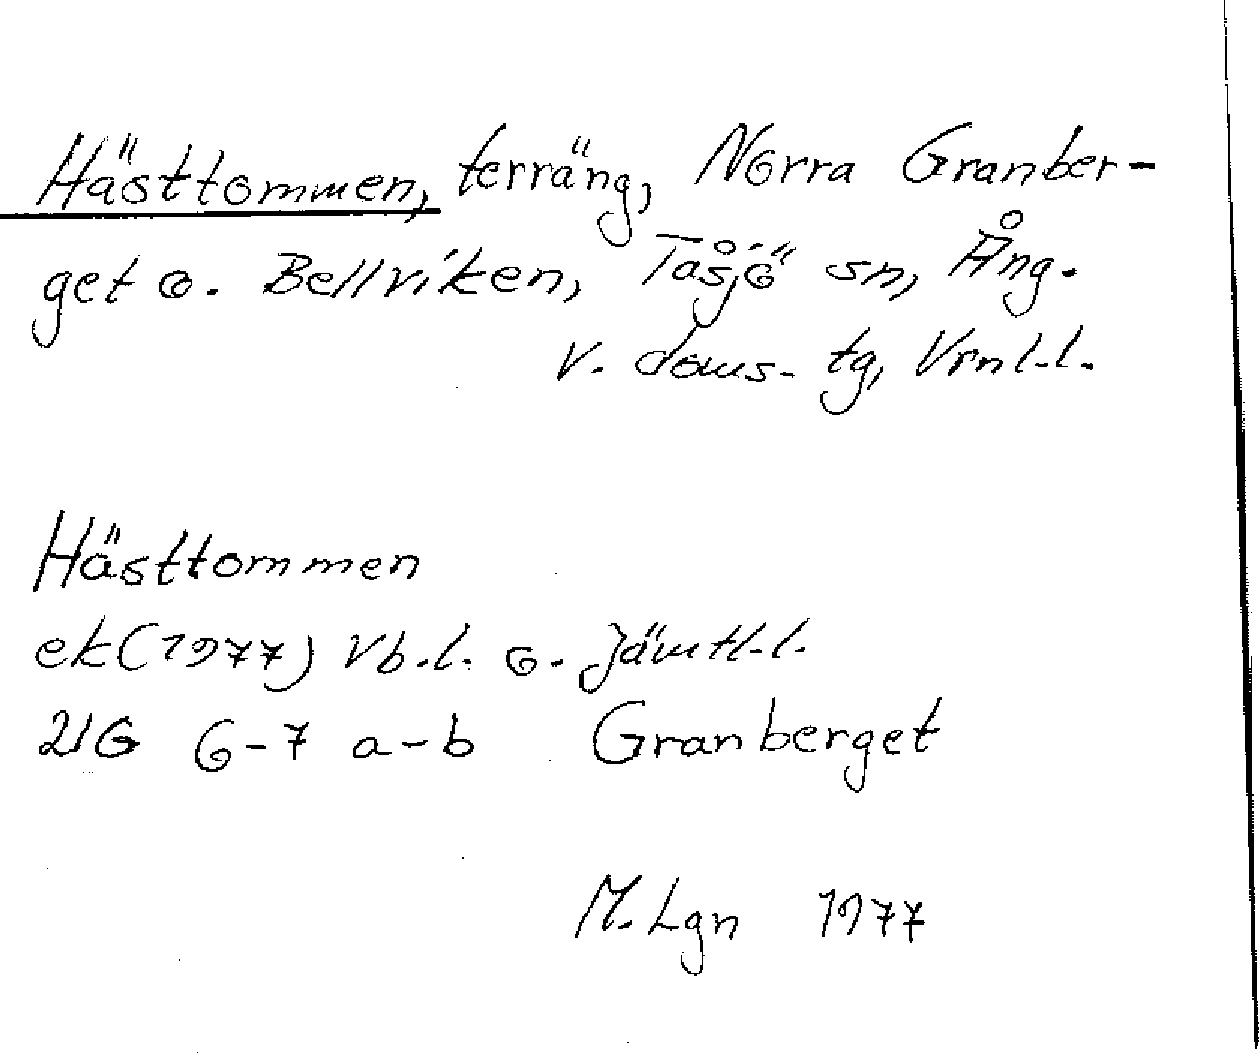 Hästtommen, terräng, Norra Granber-
get o. Bellviken, Tåsjö sn, Ång.
V. doms. tg, Vrnl.l.
Hästtommen
ek (1977) Vb.l. o. Jämtl.l.
21G 6-7 a-b Granberget
M. Lgn 1977